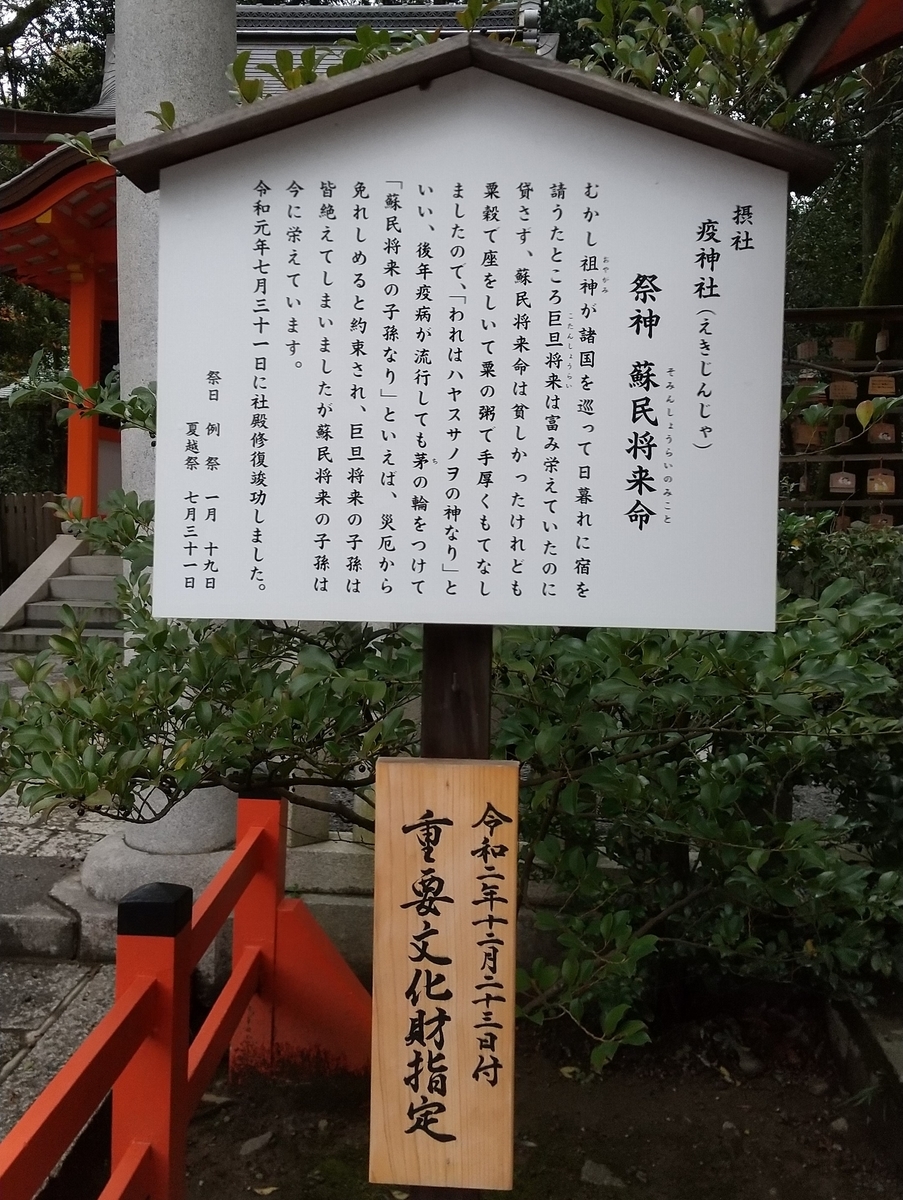 摂社
疫神社(えきじんじゃ)
祭神 蘇民将来命
そみんしょうらいのみこと
むかし祖神が諸国を巡って日暮れに宿を
おやかみ
請うたところ巨旦将来は富み栄えていたのに
こたんしょうらい
貸さず、蘇民将来命は貧しかったけれども
粟穀で座をしいて粟の粥で手厚くもてなし
ましたので、「われはハヤスサノヲの神なり」と
いい、後年疫病が流行しても茅の輪をつけて
ち
「蘇民将来の子孫なり」といえば、災厄から
免れしめると約束され、巨旦将来の子孫は
皆絶えてしまいましたが蘇民将来の子孫は
今に栄えています。
令和元年七月三十一日に社殿修復竣功しました。
祭日 例祭 一月 十九日
夏越祭 七月三十一日
令和二年十二月二十三日付
重要文化財指定